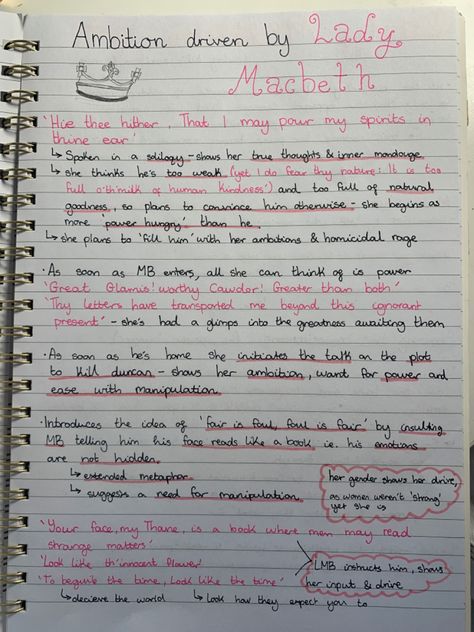 Ambition driven by Lady
Macbeth
'Hie thee hither, That I may pour my spirits in
thine ear'
↳ Spoken in a solilogy - shows her true thoughts & inner monolouge
↳ she thinks he's too weak (yet I do fear thy nature: It is too
full o'th'milk of human kindness') and too full of natural
goodness, so plans to convince him otherwise - she begins as
more 'power hungry' than he
↳ she plans to 'fill him' with her ambitions & homicidal rage
· As soon as MB enters, all she can think of is power
'Great Glamis! worthy Cawdor! Greater than both'
'Thy letters have transported me beyond this ignorant
present' - she's had a glimps into the greatness awaiting them
· As soon as he's home she initiates the talk on the plot
to kill duncan - shows her ambition, want for power and
ease with manipulation
· Introduces the idea of 'fair is foul, foul is fair' by insulting
MB telling him his face reads like a book ie. his emotions
are not hidden.
↳ extended metaphor
↳ suggests a need for manipulation
her gender shows her drive,
as women weren't 'strong'
yet she is
'Your face, my Thane, is a book where men may read
strange matters'
'Look like th'innocent flower'
'To beguile the time, Look like the time'
↳ decieve the world ↳ look how they expect you to
LMB instructs him, shows
her input & drive